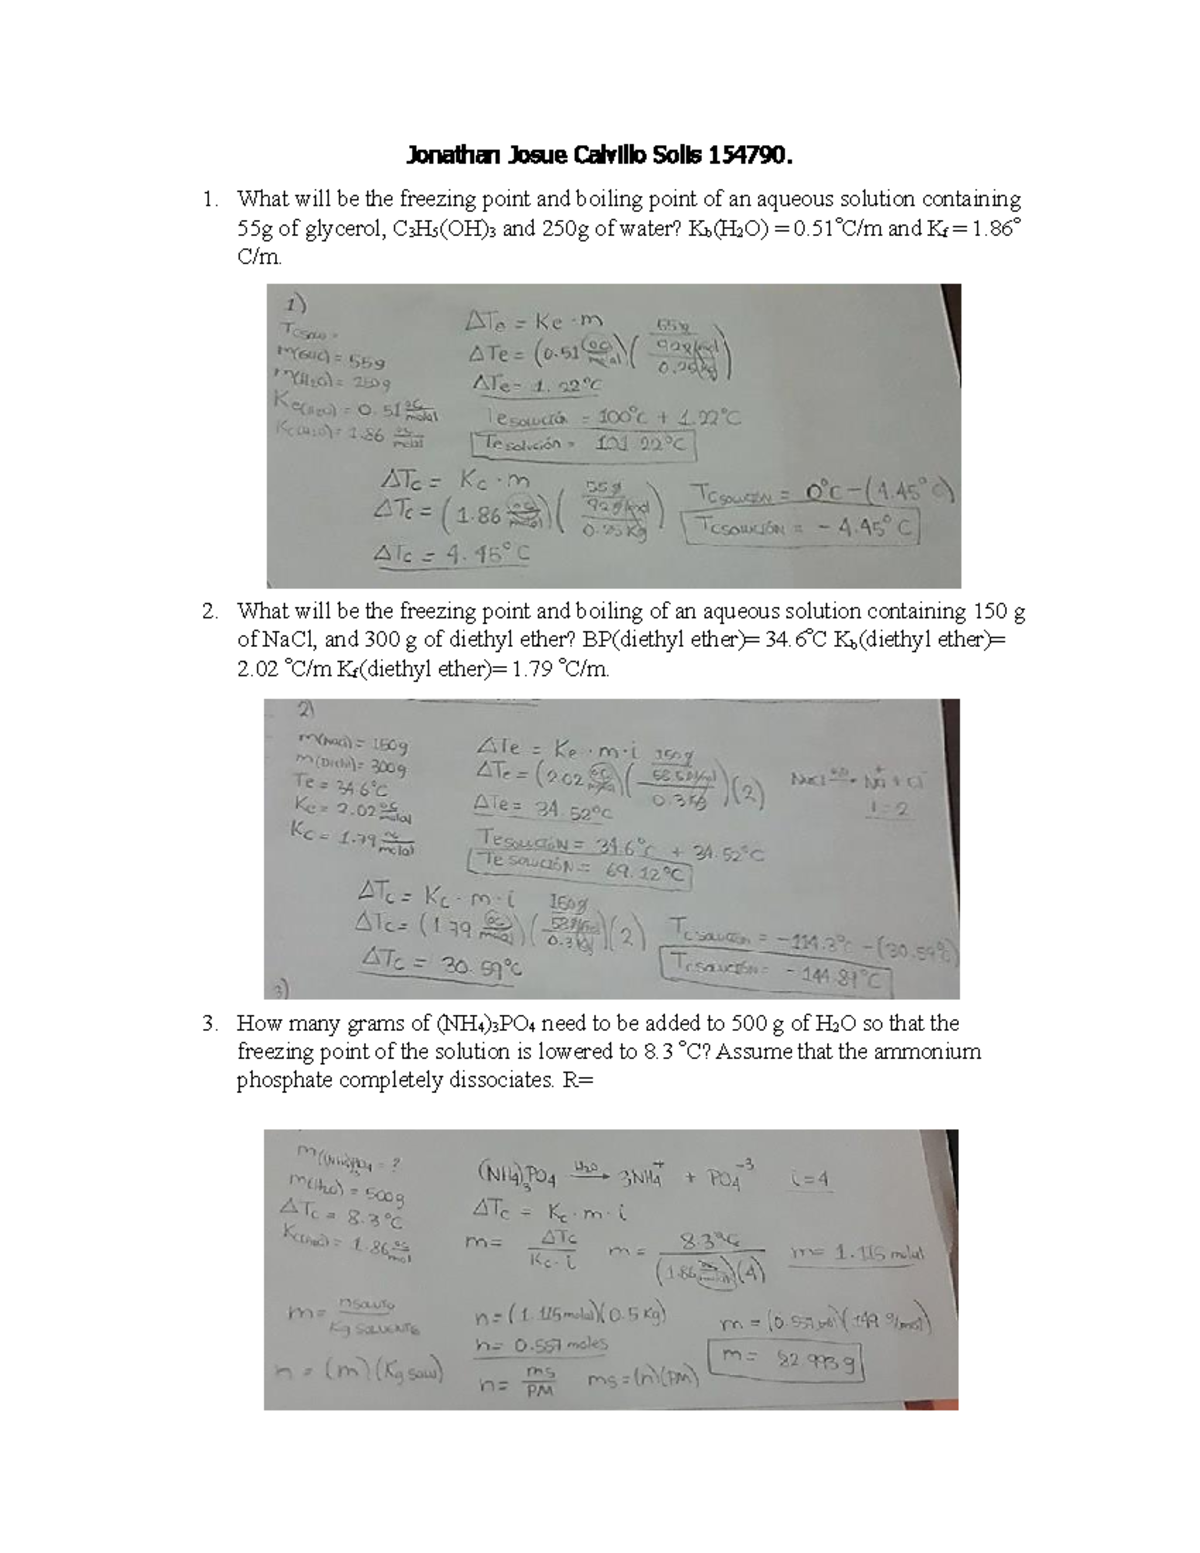 Jonathan Josue Calvillo Solis 154790.
1. What will be the freezing point and boiling point of an aqueous solution containing
55g of glycerol, C₃H₅(OH)₃ and 250g of water? Kb(H₂O) = 0.51°C/m and Kf = 1.86°
C/m.
1)
m(Glic) = 55g
m(H2O) = 250g
Ke(H2O) = 0.51 °C/molal
Kc(H2O) = 1.86 °C/molal
ΔTe = Ke · m
ΔTe = (0.51 °C/molal)(55g/92g/mol/0.25kg)
ΔTe = 1.22°C
Te solución = 100°C + 1.22°C
Te solución = 101.22°C
ΔTc = Kc · m
ΔTc = (1.86 °C/molal)(55g/92g/mol/0.25Kg)
ΔTc = 4.45°C
Tc SOLUCIÓN = 0°C - (4.45°C)
Tc SOLUCIÓN = - 4.45°C
2. What will be the freezing point and boiling of an aqueous solution containing 150 g
of NaCl, and 300 g of diethyl ether? BP(diethyl ether)= 34.6°C Kb(diethyl ether)=
2.02 °C/m Kf(diethyl ether)= 1.79 °C/m.
2)
m(NaCl) = 150g
= 300g
Te = 34.6°C
Ke = 2.02 °C/molal
Kc = 1.79 °C/molal
ΔTe = Ke · m · i
ΔTe = (2.02 °C/molal)(150g/58.5g/mol/0.3kg)(2)
ΔTe = 34.52°C
Te SOLUCIÓN = 34.6°C + 34.52°C
Te SOLUCIÓN = 69.12°C
NaCl → Na⁺ + Cl⁻
i = 2
ΔTc = Kc · m · i
ΔTc = (1.79 °C/molal)(150g/58g/mol/0.3kg)(2)
ΔTc = 30.59°C
Tc solución = -114.3°C - (30.59°C)
Tc SOLUCIÓN = - 144.89°C
3)
3. How many grams of (NH₄)₃PO₄ need to be added to 500 g of H₂O so that the
freezing point of the solution is lowered to 8.3 °C? Assume that the ammonium
phosphate completely dissociates. R=
m(NH4)3PO4 = ?
m(H2O) = 500g
ΔTc = 8.3°C
Kc(H2O) = 1.86 °C/mol
(NH4)3PO4 H2O→ 3NH4⁺ + PO4⁻³ i=4
ΔTc = Kc · m · i
m = ΔTc/Kc · i m = 8.3°C/(1.86 °C/molal)(4) m = 1.115 molal
m = n soluto/Kg SOLVENTE
n = (m)(Kg solv)
n = (1.115 molal)(0.5 Kg)
n = 0.557 moles
n = ms/PM ms = (n)(PM)
m = (0.557 mol)(149 g/mol)
m = 82.993g